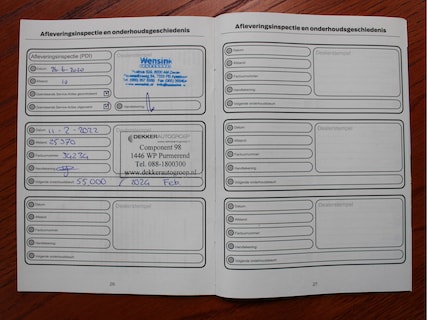 Afleveringsinspectie en onderhoudsgeschiedenis
Afleveringsinspectie (PDI)
Datum
Afstand
Handtekening
Dealerstempel
Wensink
Datum 11-2-2022
Afstand 25370
Factuurnummer
Handtekening
Volgende onderhoudsbeurt 55.000 / 2024 Feb
DEKKERAUTOGROEP
Component 98
1446 WP Purmerend
Tel. 088-1800300
www.dekkerautogroep.nl
Datum
Afstand
Factuurnummer
Handtekening
Volgende onderhoudsbeurt
Dealerstempel
26
Afleveringsinspectie en onderhoudsgeschiedenis
Datum
Afstand
Factuurnummer
Handtekening
Volgende onderhoudsbeurt
Dealerstempel
Datum
Afstand
Factuurnummer
Handtekening
Volgende onderhoudsbeurt
Dealerstempel
Datum
Afstand
Factuurnummer
Handtekening
Volgende onderhoudsbeurt
Dealerstempel
27